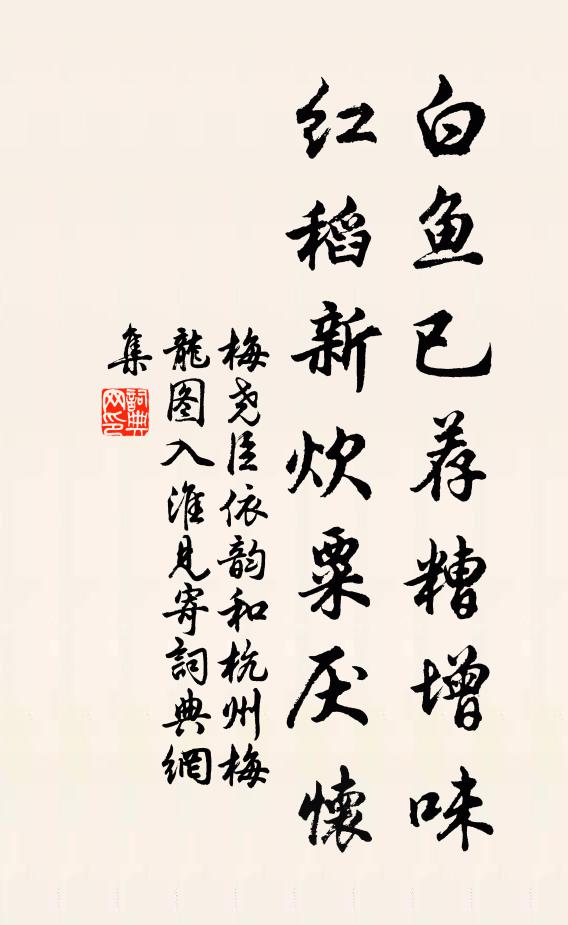 白鱼已荐糟增味
红稻新炊粟厌懷
梅尧臣依韵和杭州梅
龍图入淮见寄詞典網
集
詞典网印